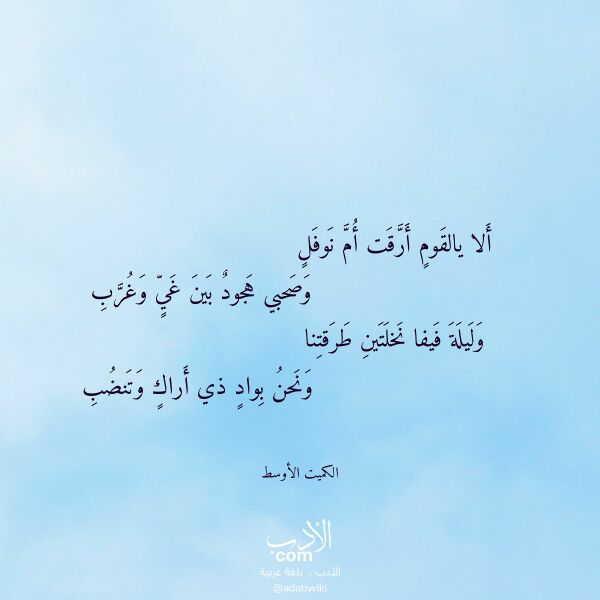 أَلا يالقَومٍ أَرَّقَت أُمَّ نَوفَلٍ
وَصَحبي هَجودٌ بَينَ غَيٍّ وَغُرَّبِ
وَلَيلَةَ فَيفا نَخلَتَينِ طَرَقتِنا
وَنَحنُ بِوادٍ ذي أَراكٍ وَتَنضُبِ
الكميت الأوسط
الأدب
com
الأدب .. بلغة عربية
@adabwiki